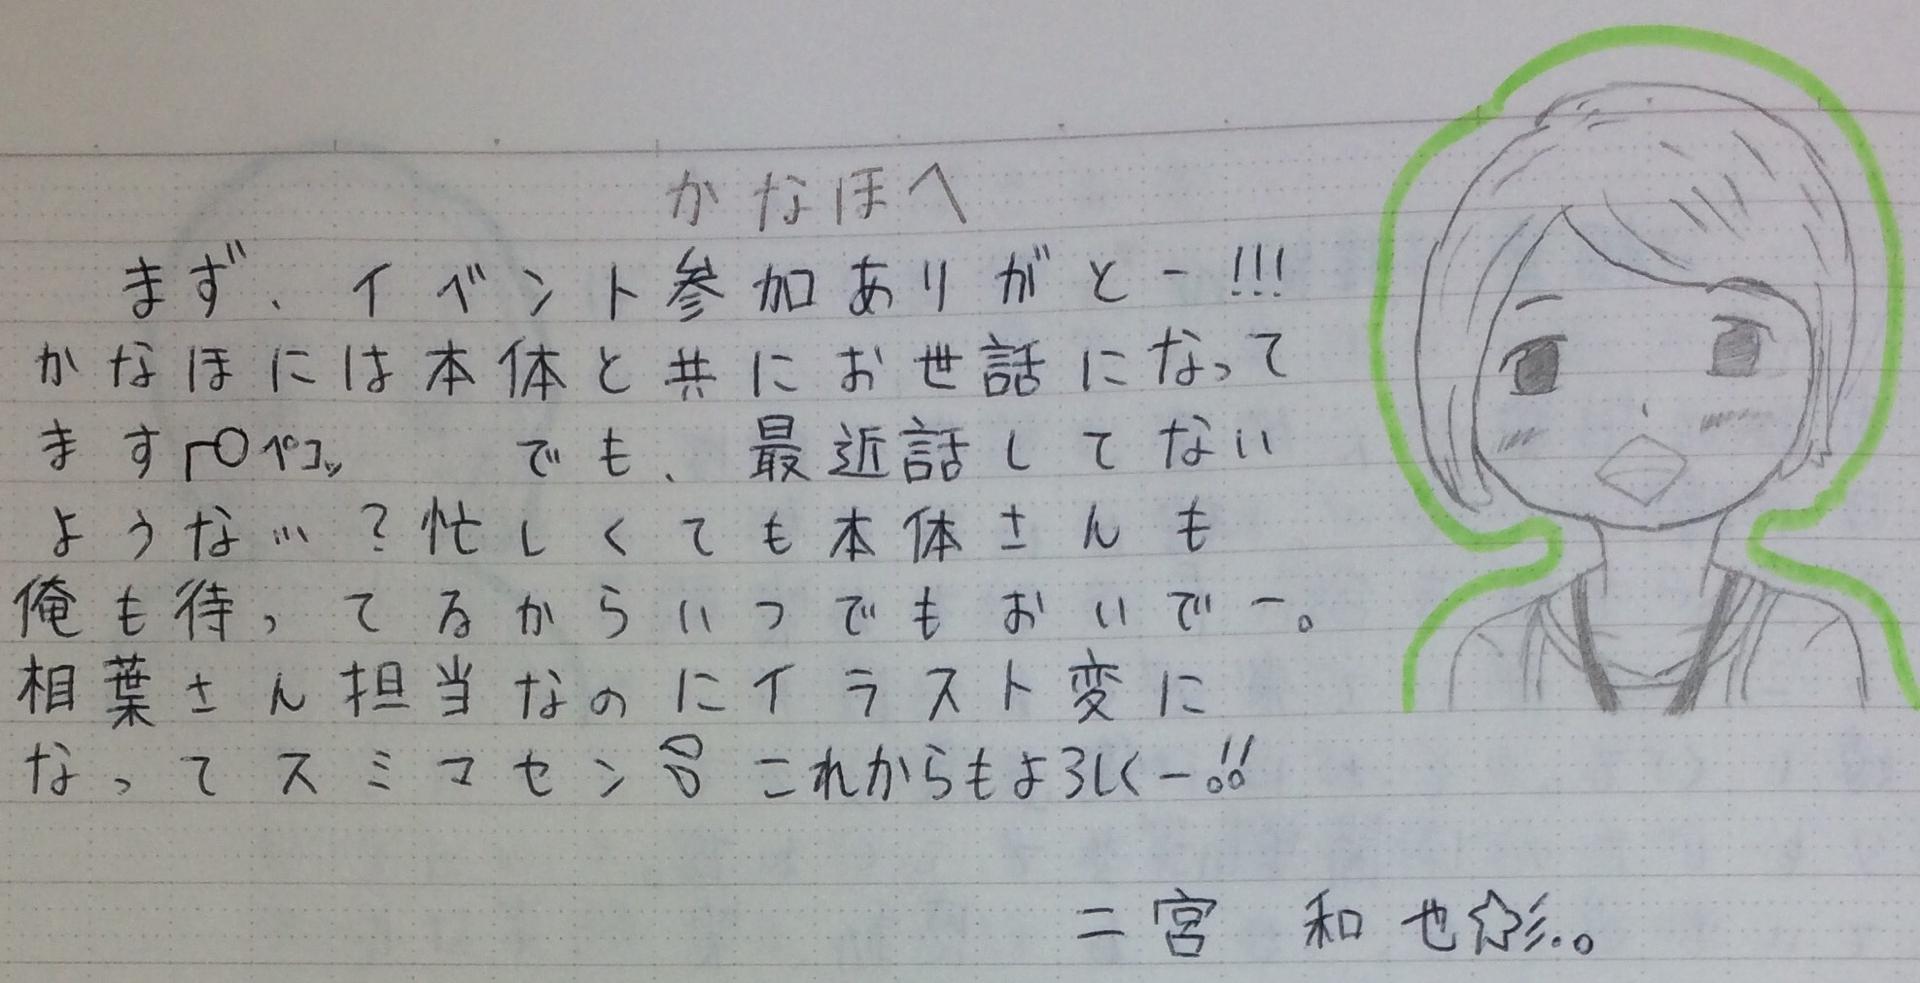 かなほへ
まず、イベント参加ありがとー!!!
かなほには本体と共にお世話になって
ますペコッ でも、最近話してない
ような…?忙しくても本体さんも
俺も待ってるからいつでもおいでー。
相葉さん担当なのにイラスト変に
なってスミマセン これからもよろしくー!!
二宮 和也☆彡.。